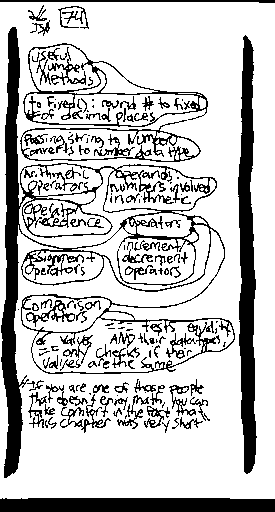 74
Useful
Number
Methods
toFixed(): round # to fixed
# of decimal places
Passing string to Number()
converts to number data type
Arithmetic
Operators
Operand:
numbers involved
in arithmetic
Operator
Precedence
Operators
Assignment
Operators
increment/
decrement
operators
Comparison
Operators
=== tests equality
of values AND their datatypes,
== only checks if their
values are the same
*If you are one of those people
that doesn't enjoy math, you can
take comfort in the fact that
this chapter was very short